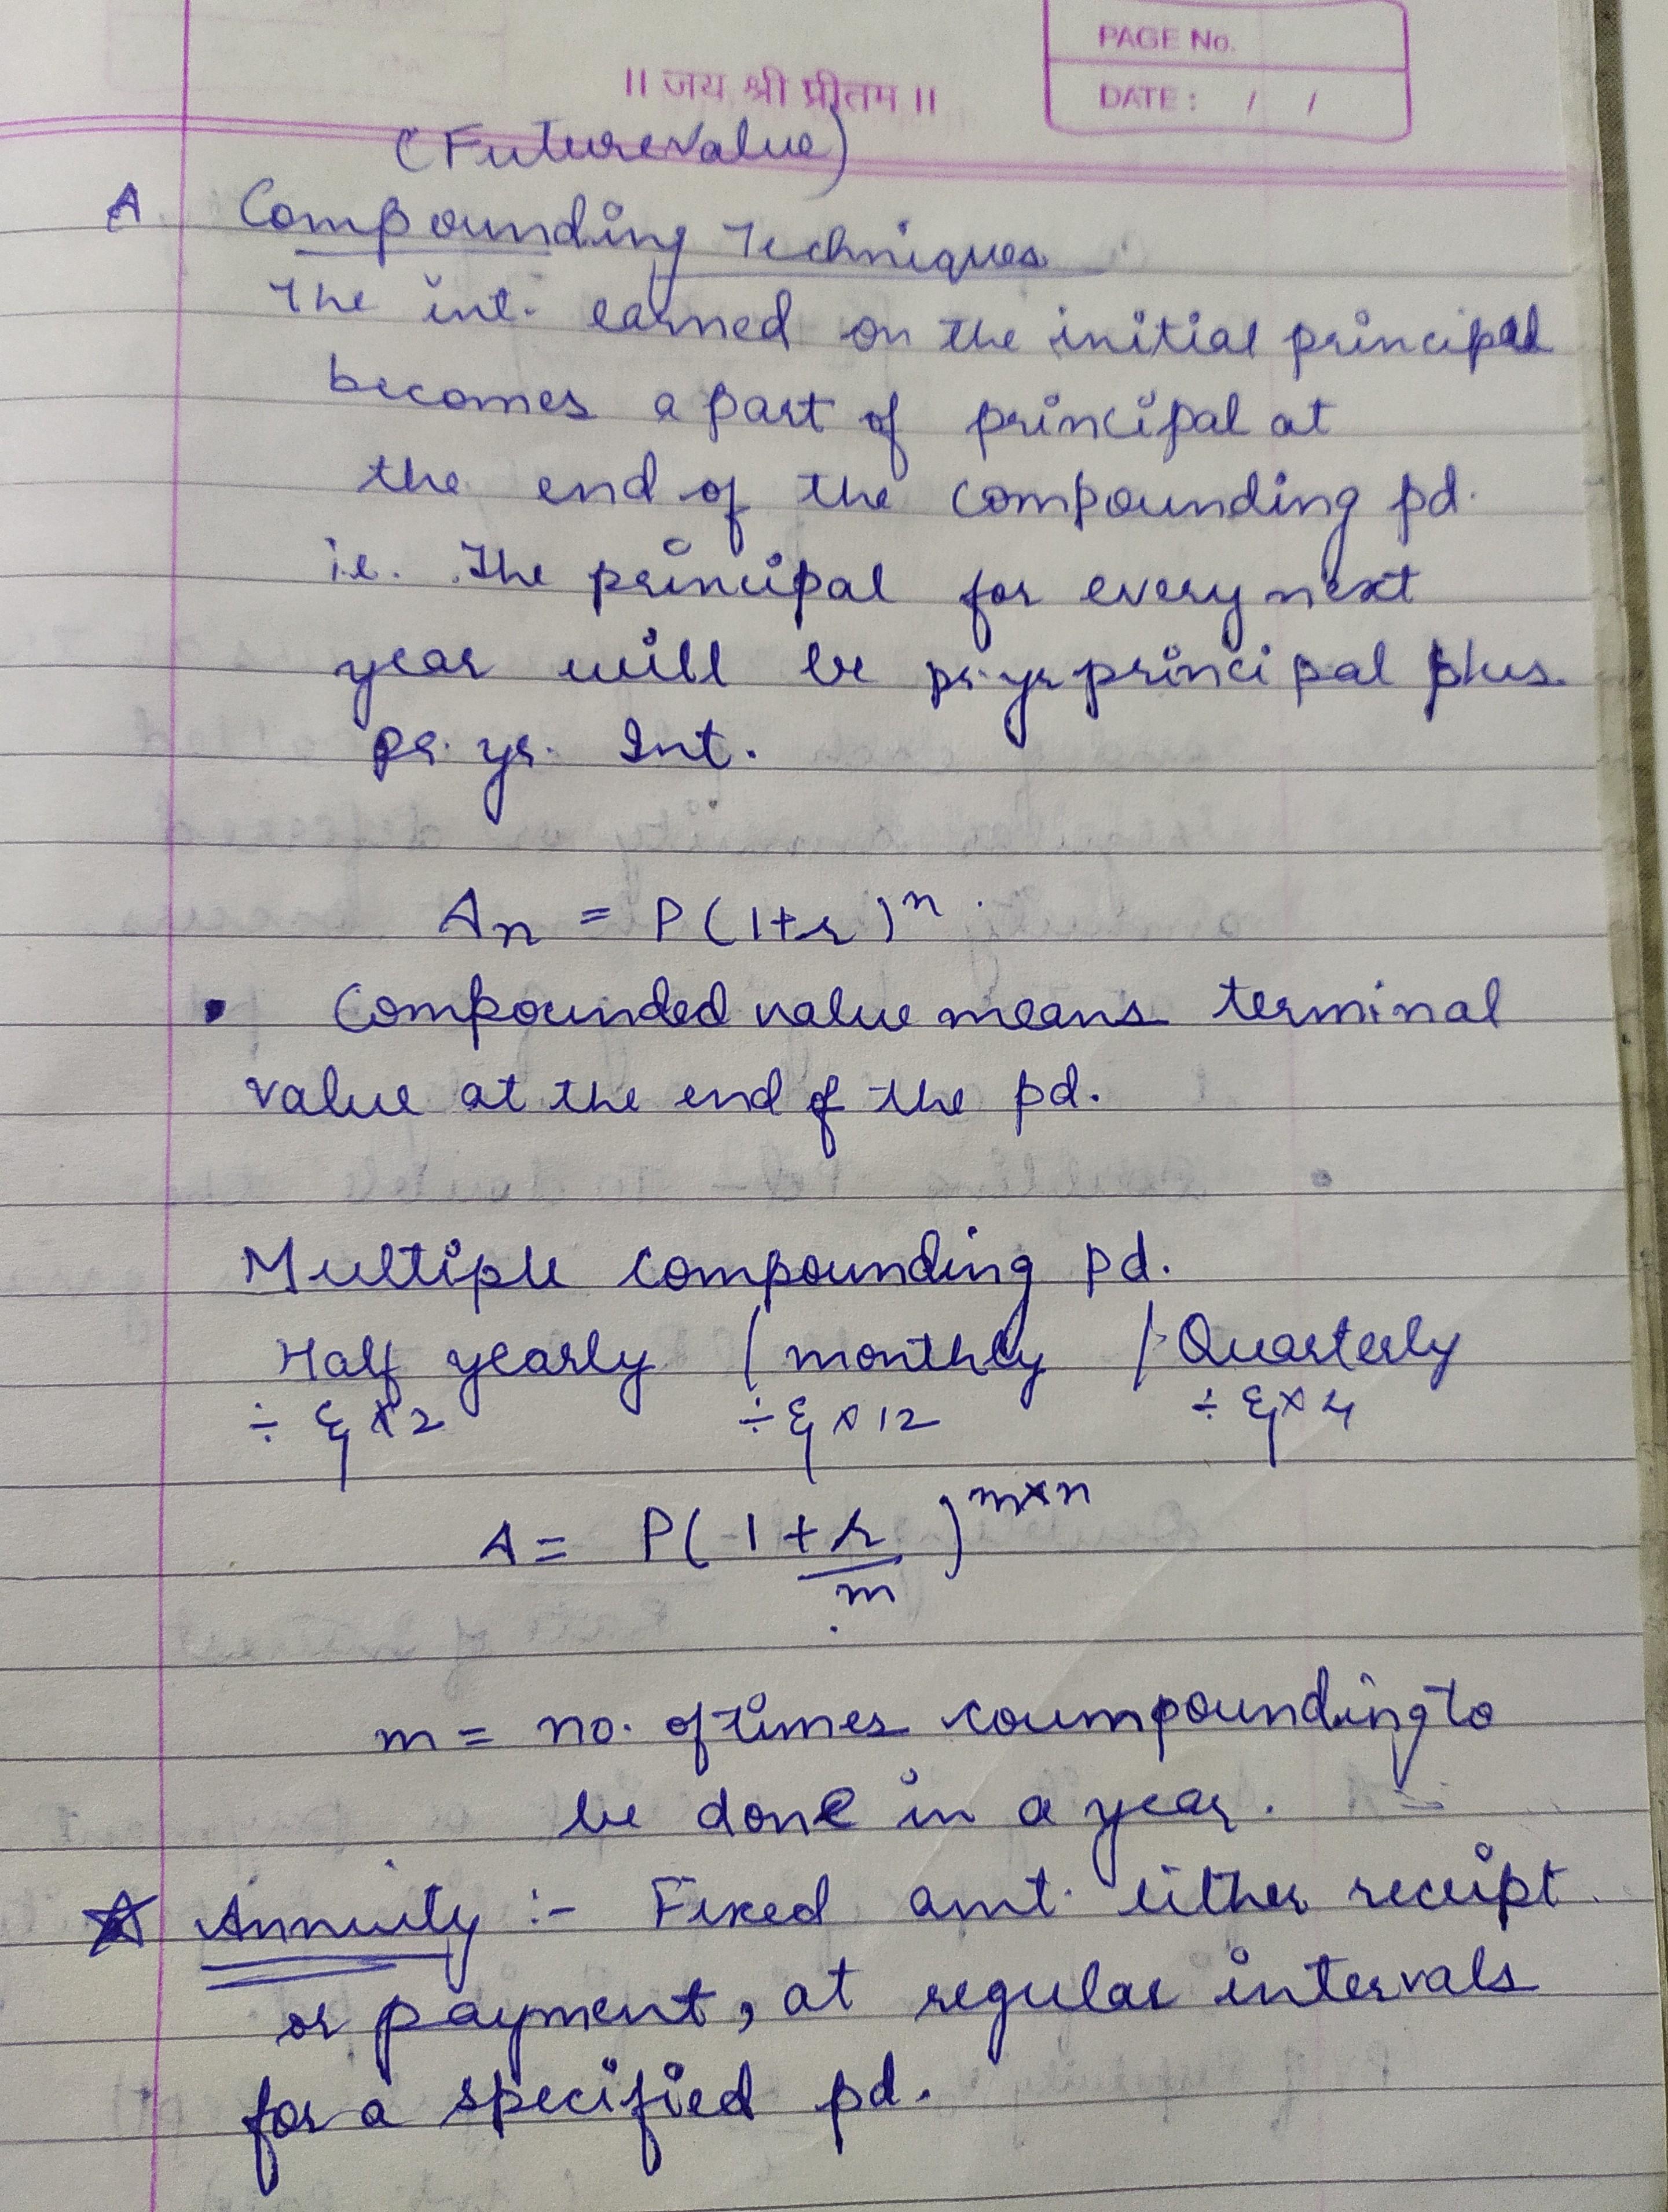 PAGE No.
DATE : / /
॥ जय श्री प्रीतम ॥
(Future value)
A Compounding Techniques
The int. earned on the initial principal
becomes a part of principal at
the end of the compounding pd.
i.e. The principal for every next
year will be pr. yr principal plus
pr. yr. Int.
An = P(1+r)^n
• Compounded value means terminal
value at the end of the pd.
Multiple compounding pd.
Half yearly / monthly / Quarterly
÷ & x 2 ÷ & x 12 ÷ & x 4
A = P(1 + r/m)^m×n
m = no. of times coumpounding to
be done in a year.
☆ Annuity :- Fixed amt. either receipt
or payment, at regular intervals
for a specified pd.